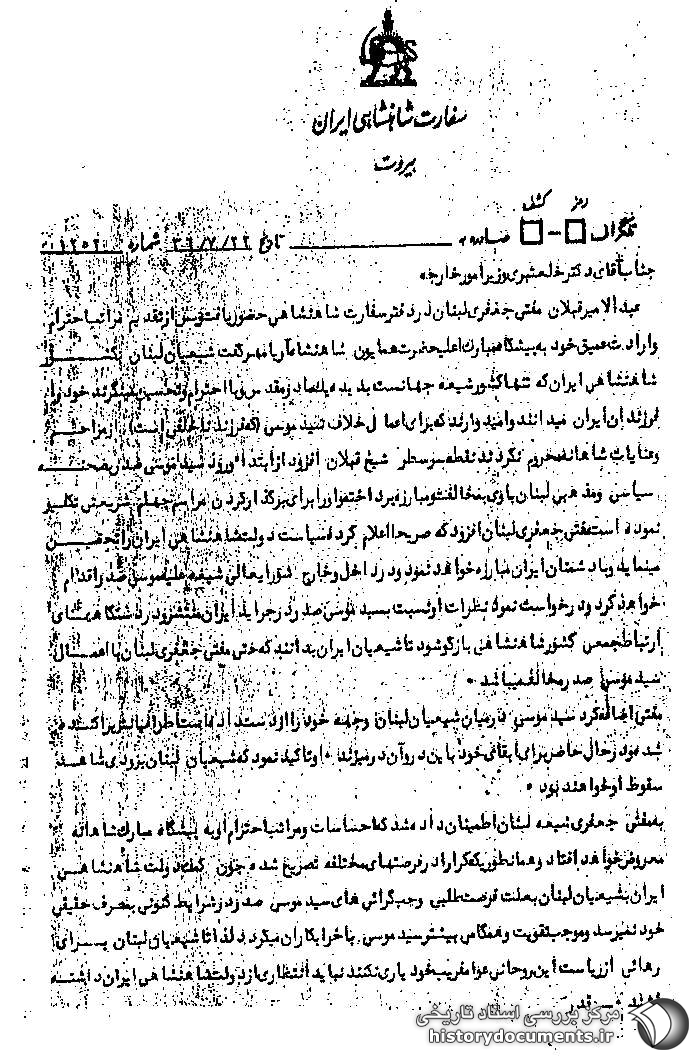 سفارت شاهنشاهی ایران
بیروت
رمز کشف
تلگراف - صادره به تاریخ ۲۲/۷/۳۱ شماره ۱۲۵۲
جناب آقای دکتر خلعتبری وزیر امور خارجه
عبدالامیر قبلان مفتی جعفری لبنان در دفتر سفارت شاهنشاهی حضور یافت و پس از تقدیم مراتب احترام
و ارادت عمیق خود به پیشگاه مبارک اعلیحضرت همایون شاهنشاه آریامهر گفت شیعیان لبنان بکشور
شاهنشاهی ایران که تنها کشور شیعه جهانست بدیده یک نماد مقدس و با احترام و تحسین مینگرند خود را
فرزندان ایران میدانند و امیدوارند که برای اعمال خلاف سید موسی (که فرزند ناخلفی است) از مراحم
و عنایات شاهانه محروم نگردند شیخ قبلان افزود از ابتدای ورود سید موسی صدر بصحنه
سیاسی و مذهبی لبنان با وی بمخالفت و مبارزه پرداخته و او را برای برگذار کردن مراسم چهلم شریعتی تکفیر
نموده است مفتی جعفری لبنان افزود که صریحا اعلام کرده سیاست دولت شاهنشاهی ایران را تحسین
مینماید و با دشمنان ایران مبارزه خواهد نمود و در داخل و خارج شورایعالی شیعه علیه موسی صدر اقدام
خواهد کرد و درخواست نمود نظرات او نسبت بسید موسی صدر در جراید ایران منتشر و در دستگاههای
ارتباط جمعی کشور شاهنشاهی بازگو شود تا شیعیان ایران بدانند که حتی مفتی جعفری لبنان با اعمال
سید موسی صدر مخالف میباشد .
مفتی اضافه کرد سید موسی در میان شیعیان لبنان وجهه خود را از دست داده است اطرافیانش پراکنده
شده و در حال حاضر برای ابقای خود باین در و آن در میزند . او تاکید نمود که شیعیان لبنان بزودی شاهد
سقوط او خواهند بود .
به مفتی جعفری شیعه لبنان اطمینان داده شد که احساسات و مراتب احترام او به پیشگاه مبارک شاهانه
معروض خواهد افتاد و همانطور که کرارا در فرصتهای مختلفه تصریح شده چون کمک دولت شاهنشاهی
ایران بشیعیان لبنان بعلت فرصت طلبی و چپ گرائی های سید موسی صدر در شرایط کنونی بمصرف حقیقی
خود نمیرسد و موجب تقویت و همگامی بیشتر سید موسی با خرابکاران میگردد لذا تا شیعیان لبنان برای
رهائی از ریاست این روحانی عوامفریب خود یاری نکنند نباید انتظاری از دولت شاهنشاهی ایران داشته
باشند . قدر
مرکز بررسی اسناد تاریخی
historydocuments.ir